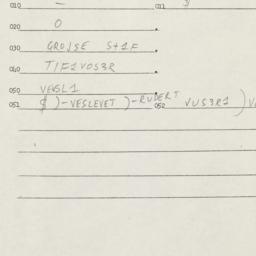 010 — 011 $
020 0
030 GROJSE S+1F
040 TIF1VOS3R
050 VEGL1
051 $ ) - VESLEVET ) - RUDERT 052 VUS3R1 )